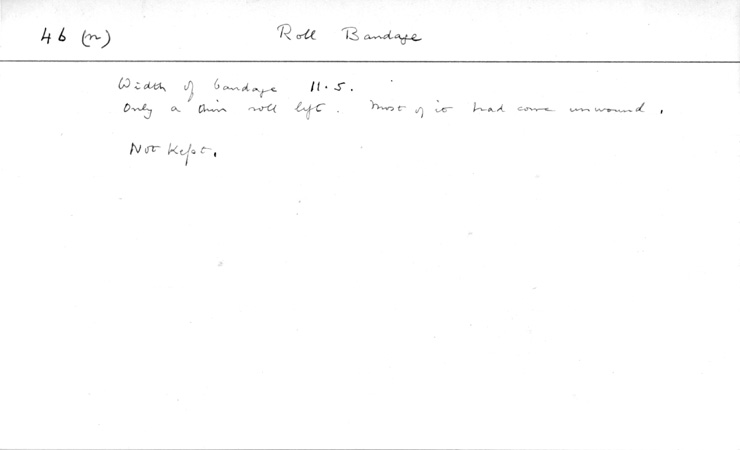 46 (n) Roll Bandage
Width of bandage 11.5.
Only a thin roll left. Most of it had come unwound.
Not Kept.